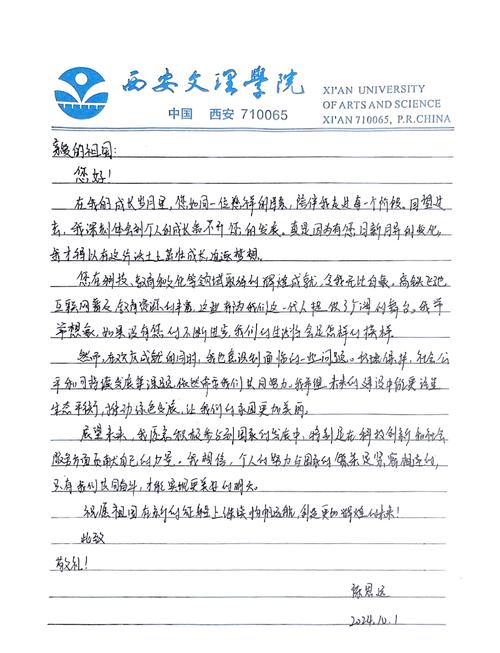 西安文理學院
中国 西安 710065
XI'AN UNIVERSITY
OF ARTS AND SCIENCE
XI'AN 710065, P.R.CHINA
亲爱的祖国:
您好!
在我的成长岁月里,您如同一位慈祥的母亲,陪伴我走过每一个阶段。回望过
去,我深刻体会到个人的成长离不开您的发展。真是因为有您日新月异的变化,
我才得以在这片沃土上茁壮成长、追逐梦想。
您在科技、教育和文化等领域取得的辉煌成就,令我无比自豪。高铁飞驰
互联网普及、教育资源的丰富,这些都为我们这一代人提供了广阔的舞台。我常
常想象,如果没有您的不断进步,我们的生活将会是怎样的模样。
然而,在欢庆成就的同时,我也意识到面临的一些问题。环境保护、社会公
平和可持续发展等课题,依然需要我们共同努力。我希望未来的建设中能更注重
生态平衡,推动绿色发展,让我们的家园更加美丽。
展望未来,我愿意积极参与到国家的发展中,特别是在科技创新和社会
服务方面贡献自己的力量。我相信,个人的努力与国家的繁荣是紧密相连的,
只有我们共同奋斗,才能实现更美好的明天。
祝愿祖国在新的征程上继续扬帆远航,创造更加辉煌的未来!
此致
敬礼!
陈思远
2024.10.1